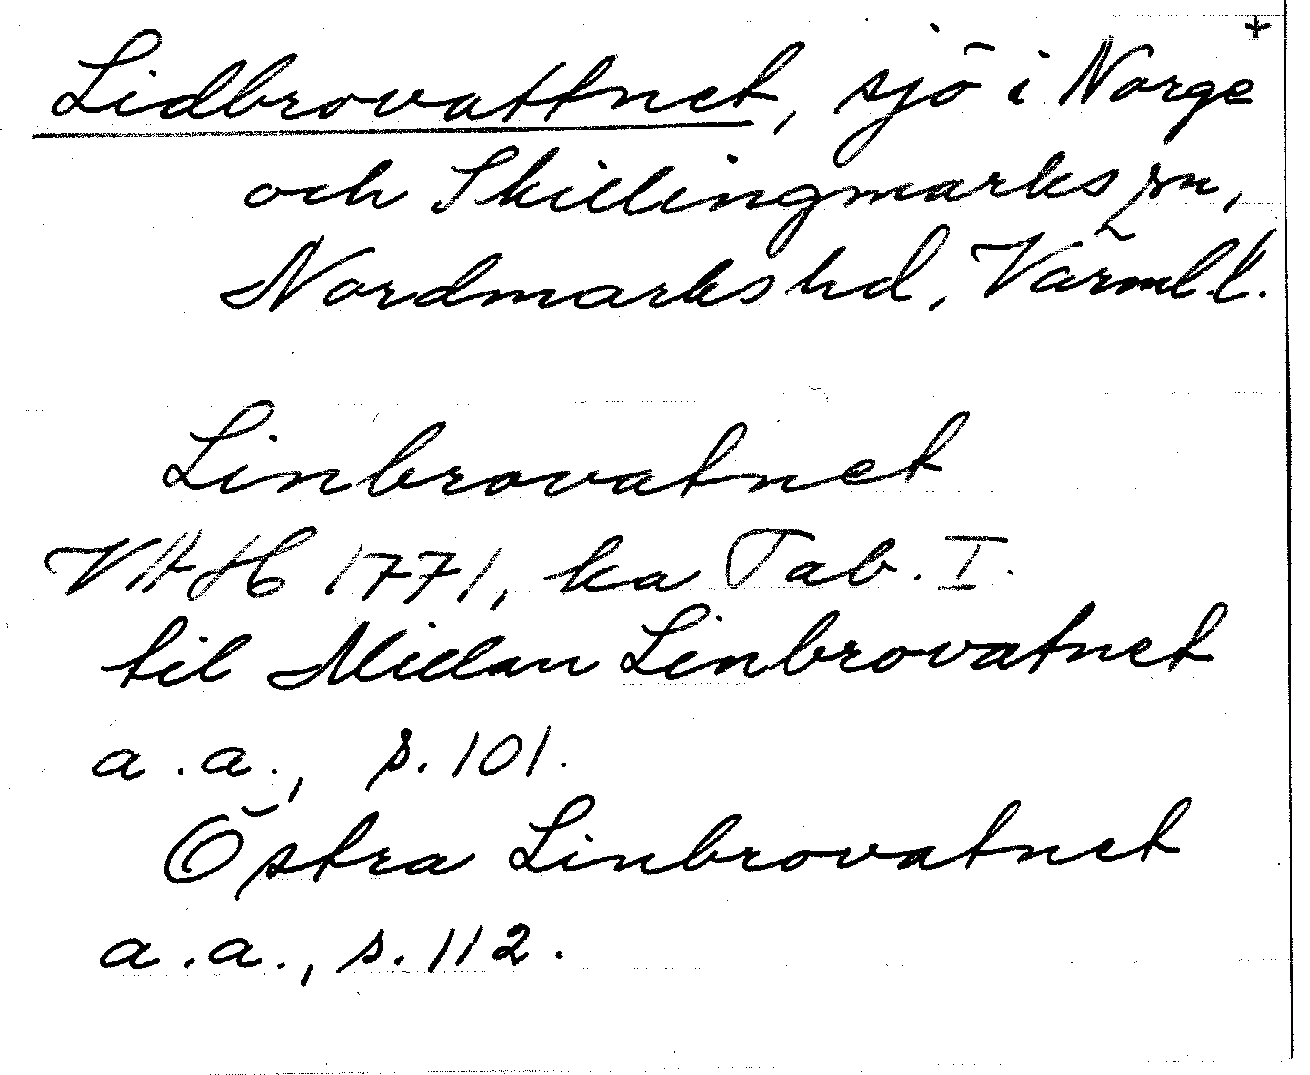 +
Lidbrovattnet, sjö i Norge
och Skillingmarks sn,
Nordmarks hd, Värml.l.
Linbrovatnet
VAH 1771, ka Tab. I.
til Midlan Linbrovatnet
a.a., s. 101.
Östra Linbrovatnet
a.a., s. 112.